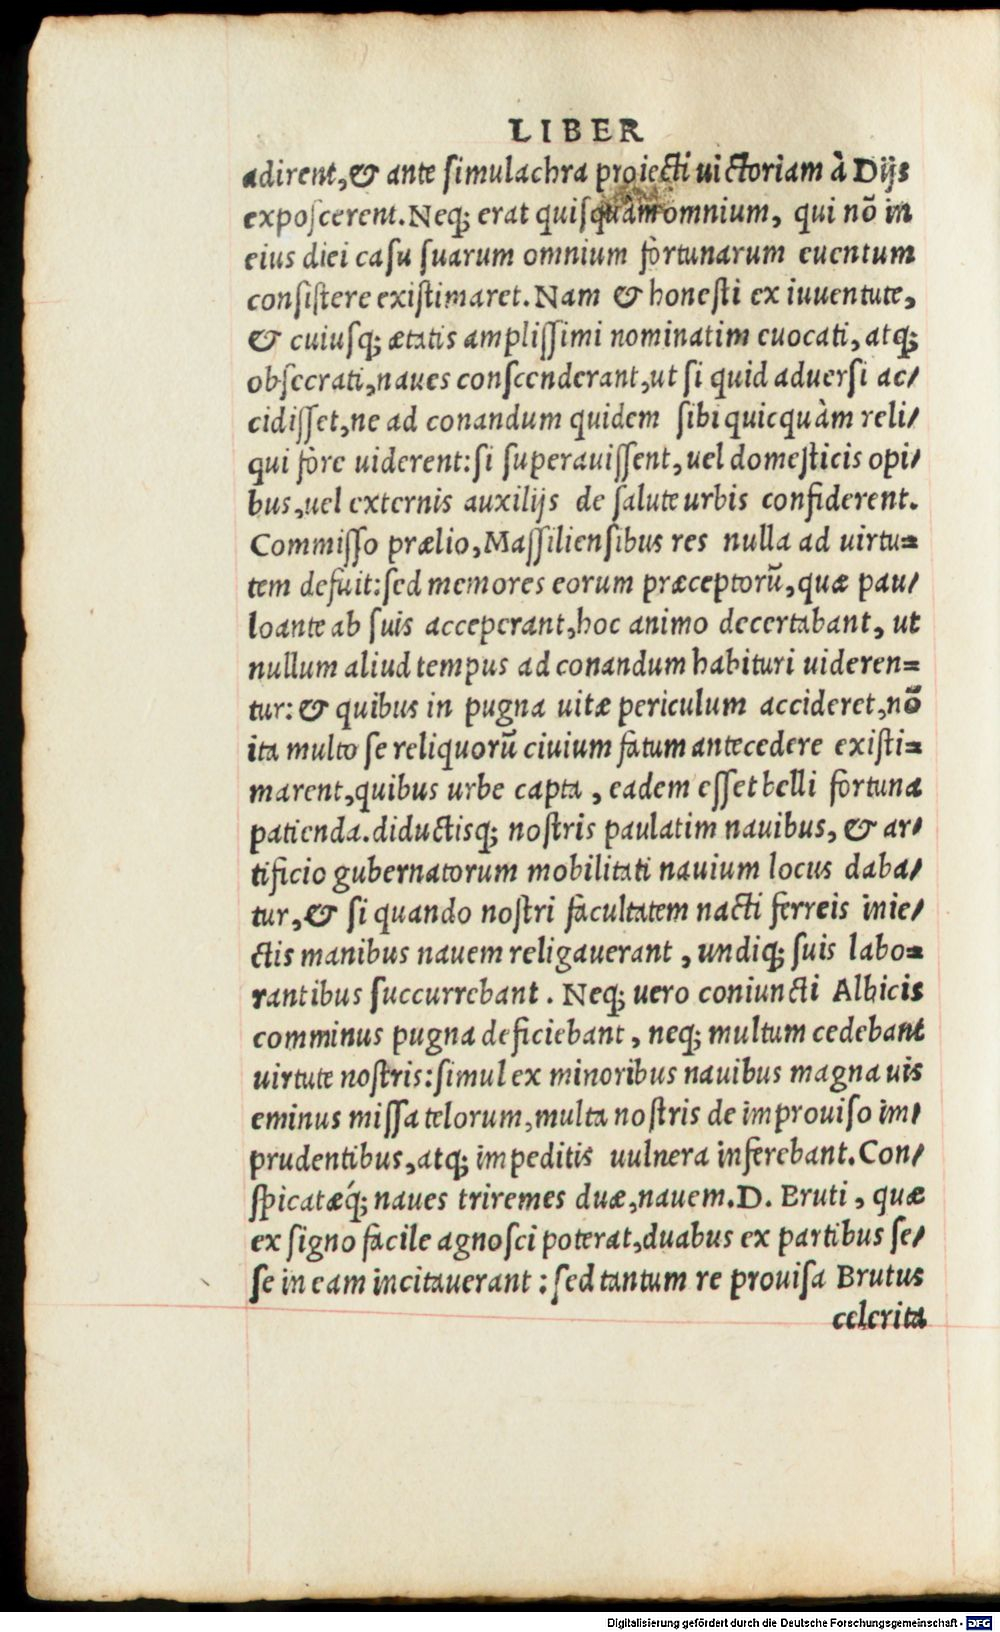 LIBER
adirent,& ante ſimulachra proiecti uictoriam à Dijs
expoſcerent.Neq; erat quiſquàm omnium, qui nõ in
eius diei caſu ſuarum omnium fortunarum euentum
conſiſtere exiſtimaret.Nam & honeſti ex iuuentute,
& cuiuſq; ætatis ampliſſimi nominatim euocati, atq;
obſecrati,naues conſcenderant,ut ſi quid aduerſi ac/
cidiſſet,ne ad conandum quidem ſibi quicquàm reli/
qui fòre uiderent:ſi ſuperauiſſent,uel domeſticis opi/
bus,uel externis auxilijs de ſalute urbis confiderent.
Commiſſo prælio,Maſſilienſibus res nulla ad uirtu=
tem defuit:ſed memores eorum præceptorũ,quæ pau/
loante ab ſuis acceperant,hoc animo decertabant, ut
nullum aliud tempus ad conandum habituri uideren=
tur:& quibus in pugna uitæ periculum accideret,nõ
ita multo ſe reliquorũ ciuium fatum antecedere exiſti=
marent,quibus urbe capta , eadem eſſet belli fortuna
patienda.diductisq; noſtris paulatim nauibus, & ar/
tificio gubernatorum mobilitati nauium locus daba/
tur,& ſi quando noſtri facultatem nacti ferreis inie/
ctis manibus nauem religauerant , undiq; ſuis labo=
rantibus ſuccurrebant . Neq; uero coniuncti Albicis
comminus pugna deficiebant , neq; multum cedebant
uirtute noſtris:ſimul ex minoribus nauibus magna uis
eminus miſſa telorum,multa noſtris de improuiſo im/
prudentibus,atq; impeditis uulnera inferebant.Con/
ſpicatæq́; naues triremes duæ,nauem.D. Bruti , quæ
ex ſigno facile agnoſci poterat,duabus ex partibus ſe/
ſe in eam incitauerant : ſed tantum re prouiſa Brutus
celerita
Digitalisierung gefördert durch die Deutsche Forschungsgemeinschaft - DFG